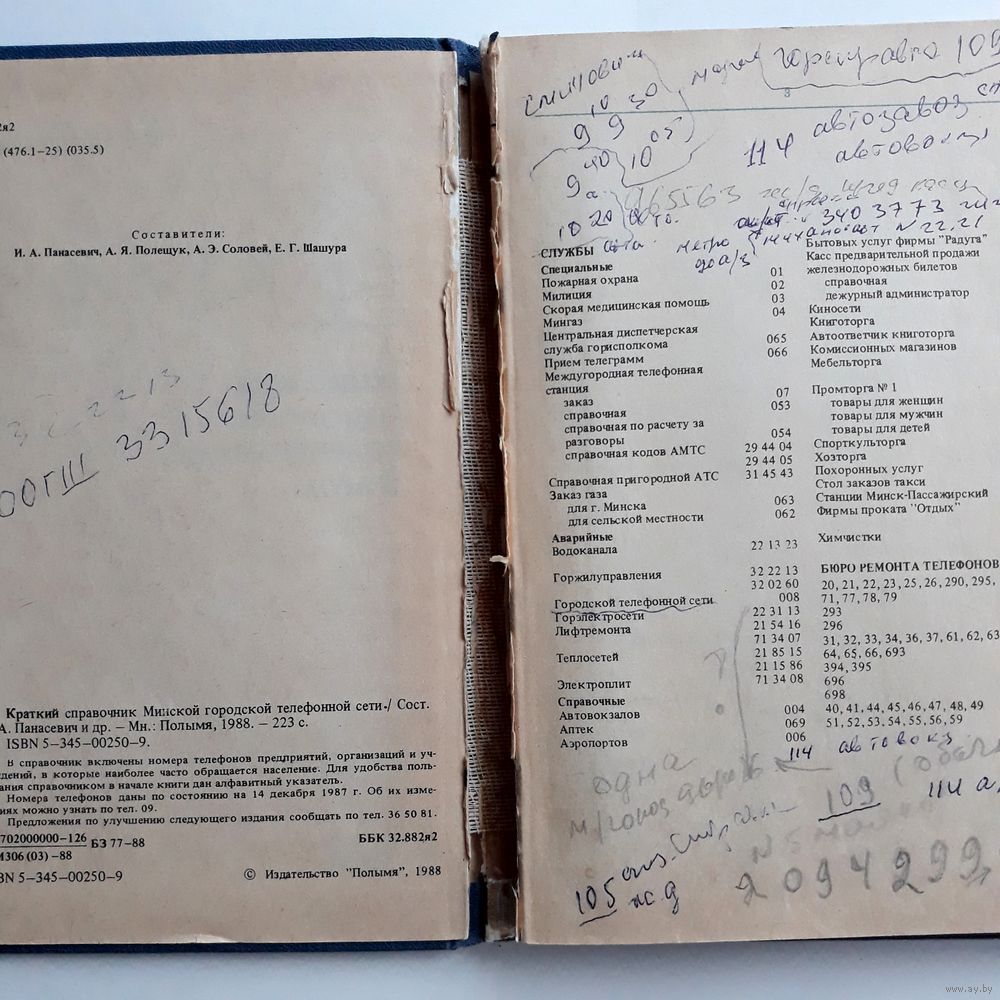 2я2
(476.1-25) (035.5)
Составители:
И. А. Панасевич, А. Я. Полещук, А. Э. Соловей, Е. Г. Шашура
32 22 13
3315618
Краткий справочник Минской городской телефонной сети./ Сост.
А. Панасевич и др. – Мн.: Полымя, 1988. – 223 с.
ISBN 5-345-00250-9.
В справочник включены номера телефонов предприятий, организаций и уч-
дений, в которые наиболее часто обращается население. Для удобства поль-
ания справочником в начале книги дан алфавитный указатель.
Номера телефонов даны по состоянию на 14 декабря 1987 г. Об их изме-
иях можно узнать по тел. 09.
Предложения по улучшению следующего издания сообщать по тел. 36 50 81.
702000000-126
М306 (03) -88
БЗ 77-88
ББК 32.882я2
BN 5-345-00250-9
© Издательство "Полымя", 1988
109
3
114 автозавоз
автовокз
965563
340 3773
метро
N 22, 21
СЛУЖБЫ
Специальные
Пожарная охрана 01
Милиция 02
Скорая медицинская помощь 03
Мингаз 04
Центральная диспетчерская
служба горисполкома 065
Прием телеграмм 066
Междугородная телефонная
станция
заказ 07
справочная 053
справочная по расчету за
разговоры 054
справочная кодов АМТС 29 44 04
29 44 05
Справочная пригородной АТС 31 45 43
Заказ газа
для г. Минска 063
для сельской местности 062
Аварийные
Водоканала 22 13 23
Горжилуправления 32 22 13
32 02 60
Городской телефонной сети 008
Горэлектросети 22 31 13
Лифтремонта 21 54 16
71 34 07
Теплосетей 21 85 15
21 15 86
Электроплит 71 34 08
Справочные
Автовокзалов 004
Аптек 069
Аэропортов 006
Бытовых услуг фирмы "Радуга"
Касс предварительной продажи
железнодорожных билетов
справочная
дежурный администратор
Киносети
Книготорга
Автоответчик книготорга
Комиссионных магазинов
Мебельторга
Промторга № 1
товары для женщин
товары для мужчин
товары для детей
Спорткульторга
Хозторга
Похоронных услуг
Стол заказов такси
Станции Минск-Пассажирский
Фирмы проката "Отдых"
Химчистки
БЮРО РЕМОНТА ТЕЛЕФОНОВ
20, 21, 22, 23, 25, 26, 290, 295,
71, 77, 78, 79
293
296
31, 32, 33, 34, 36, 37, 61, 62, 63
64, 65, 66, 693
394, 395
696
698
40, 41, 44, 45, 46, 47, 48, 49
51, 52, 53, 54, 55, 56, 59
114 автовокз
одна
109
114 а
105
2094299
www.ay.by